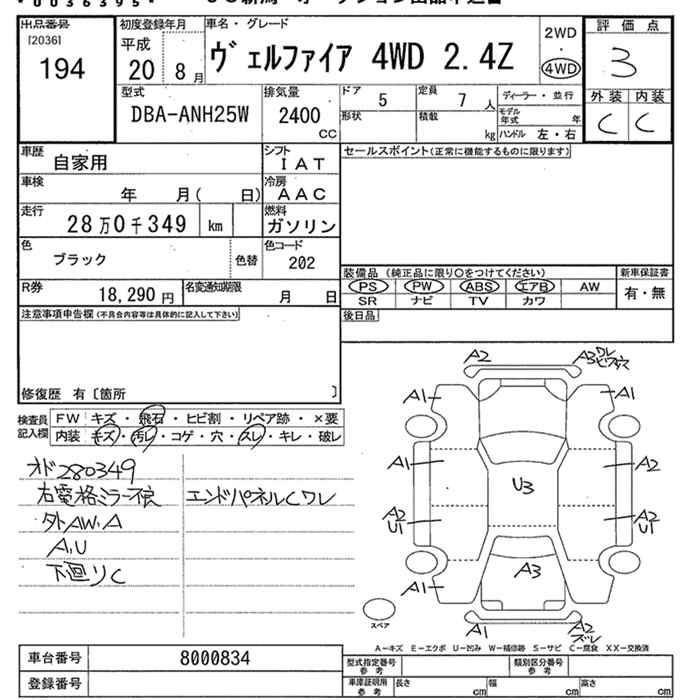 *0036395*
出品番号
[2036]
194
初度登録年月
平成
20 8月
車名・グレード
ヴェルファイア 4WD 2.4Z
2WD
・
4WD
評価点
3
外装 内装
C C
型式
DBA-ANH25W
排気量
2400
CC
ドア
5
定員
7 人
ディーラー・並行
形状
積載
kg
モデル年式
年
ハンドル 左・右
車歴
自家用
シフト
IAT
セールスポイント(正常に機能するものに限ります)
車検
年 月( 日)
冷房
AAC
走行
28万0千349 km
燃料
ガソリン
色
ブラック
色替
色コード
202
装備品(純正品に限り○をつけてください)
新車保証書
PS PW ABS エアB AW
有・無
SR ナビ TV カワ
R券
18,290円
名変通知期限
月 日
後日品
注意事項申告欄(不具合内容等は具体的に記入して下さい)
修復歴 有〔箇所 〕
検査員
記入欄
FW キズ・飛石・ヒビ割・リペア跡・×要
内装 キズ・汚レ・コゲ・穴・スレ・キレ・破レ
オド280349
右電格ミラー不良
エンドパネルCワレ
外AW.A
A.U
下廻りC
A2
A3ワレ
A1
A1
A1
A2
U3
A2
U1
A2
U1
A3
A1
A1
A2
ズレ
スペア
A-キズ E-エクボ U-凹み W-補修跡 S-サビ C-腐食 XX-交換済
車台番号
8000834
登録番号
型式指定番号
参考
類別区分番号
参考
車庫証明用
参考
長さ
cm
幅
cm
高さ
cm